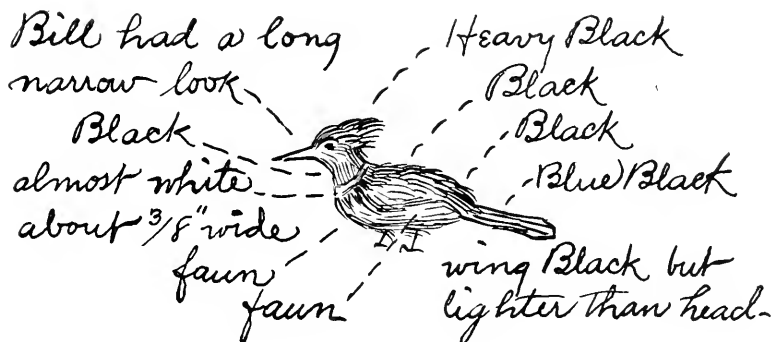 Bill had a long
narrow look
Black
almost white
about 3/8" wide
faun
faun
Heavy Black
Black
Black
Blue Black
wing Black but
lighter than head-